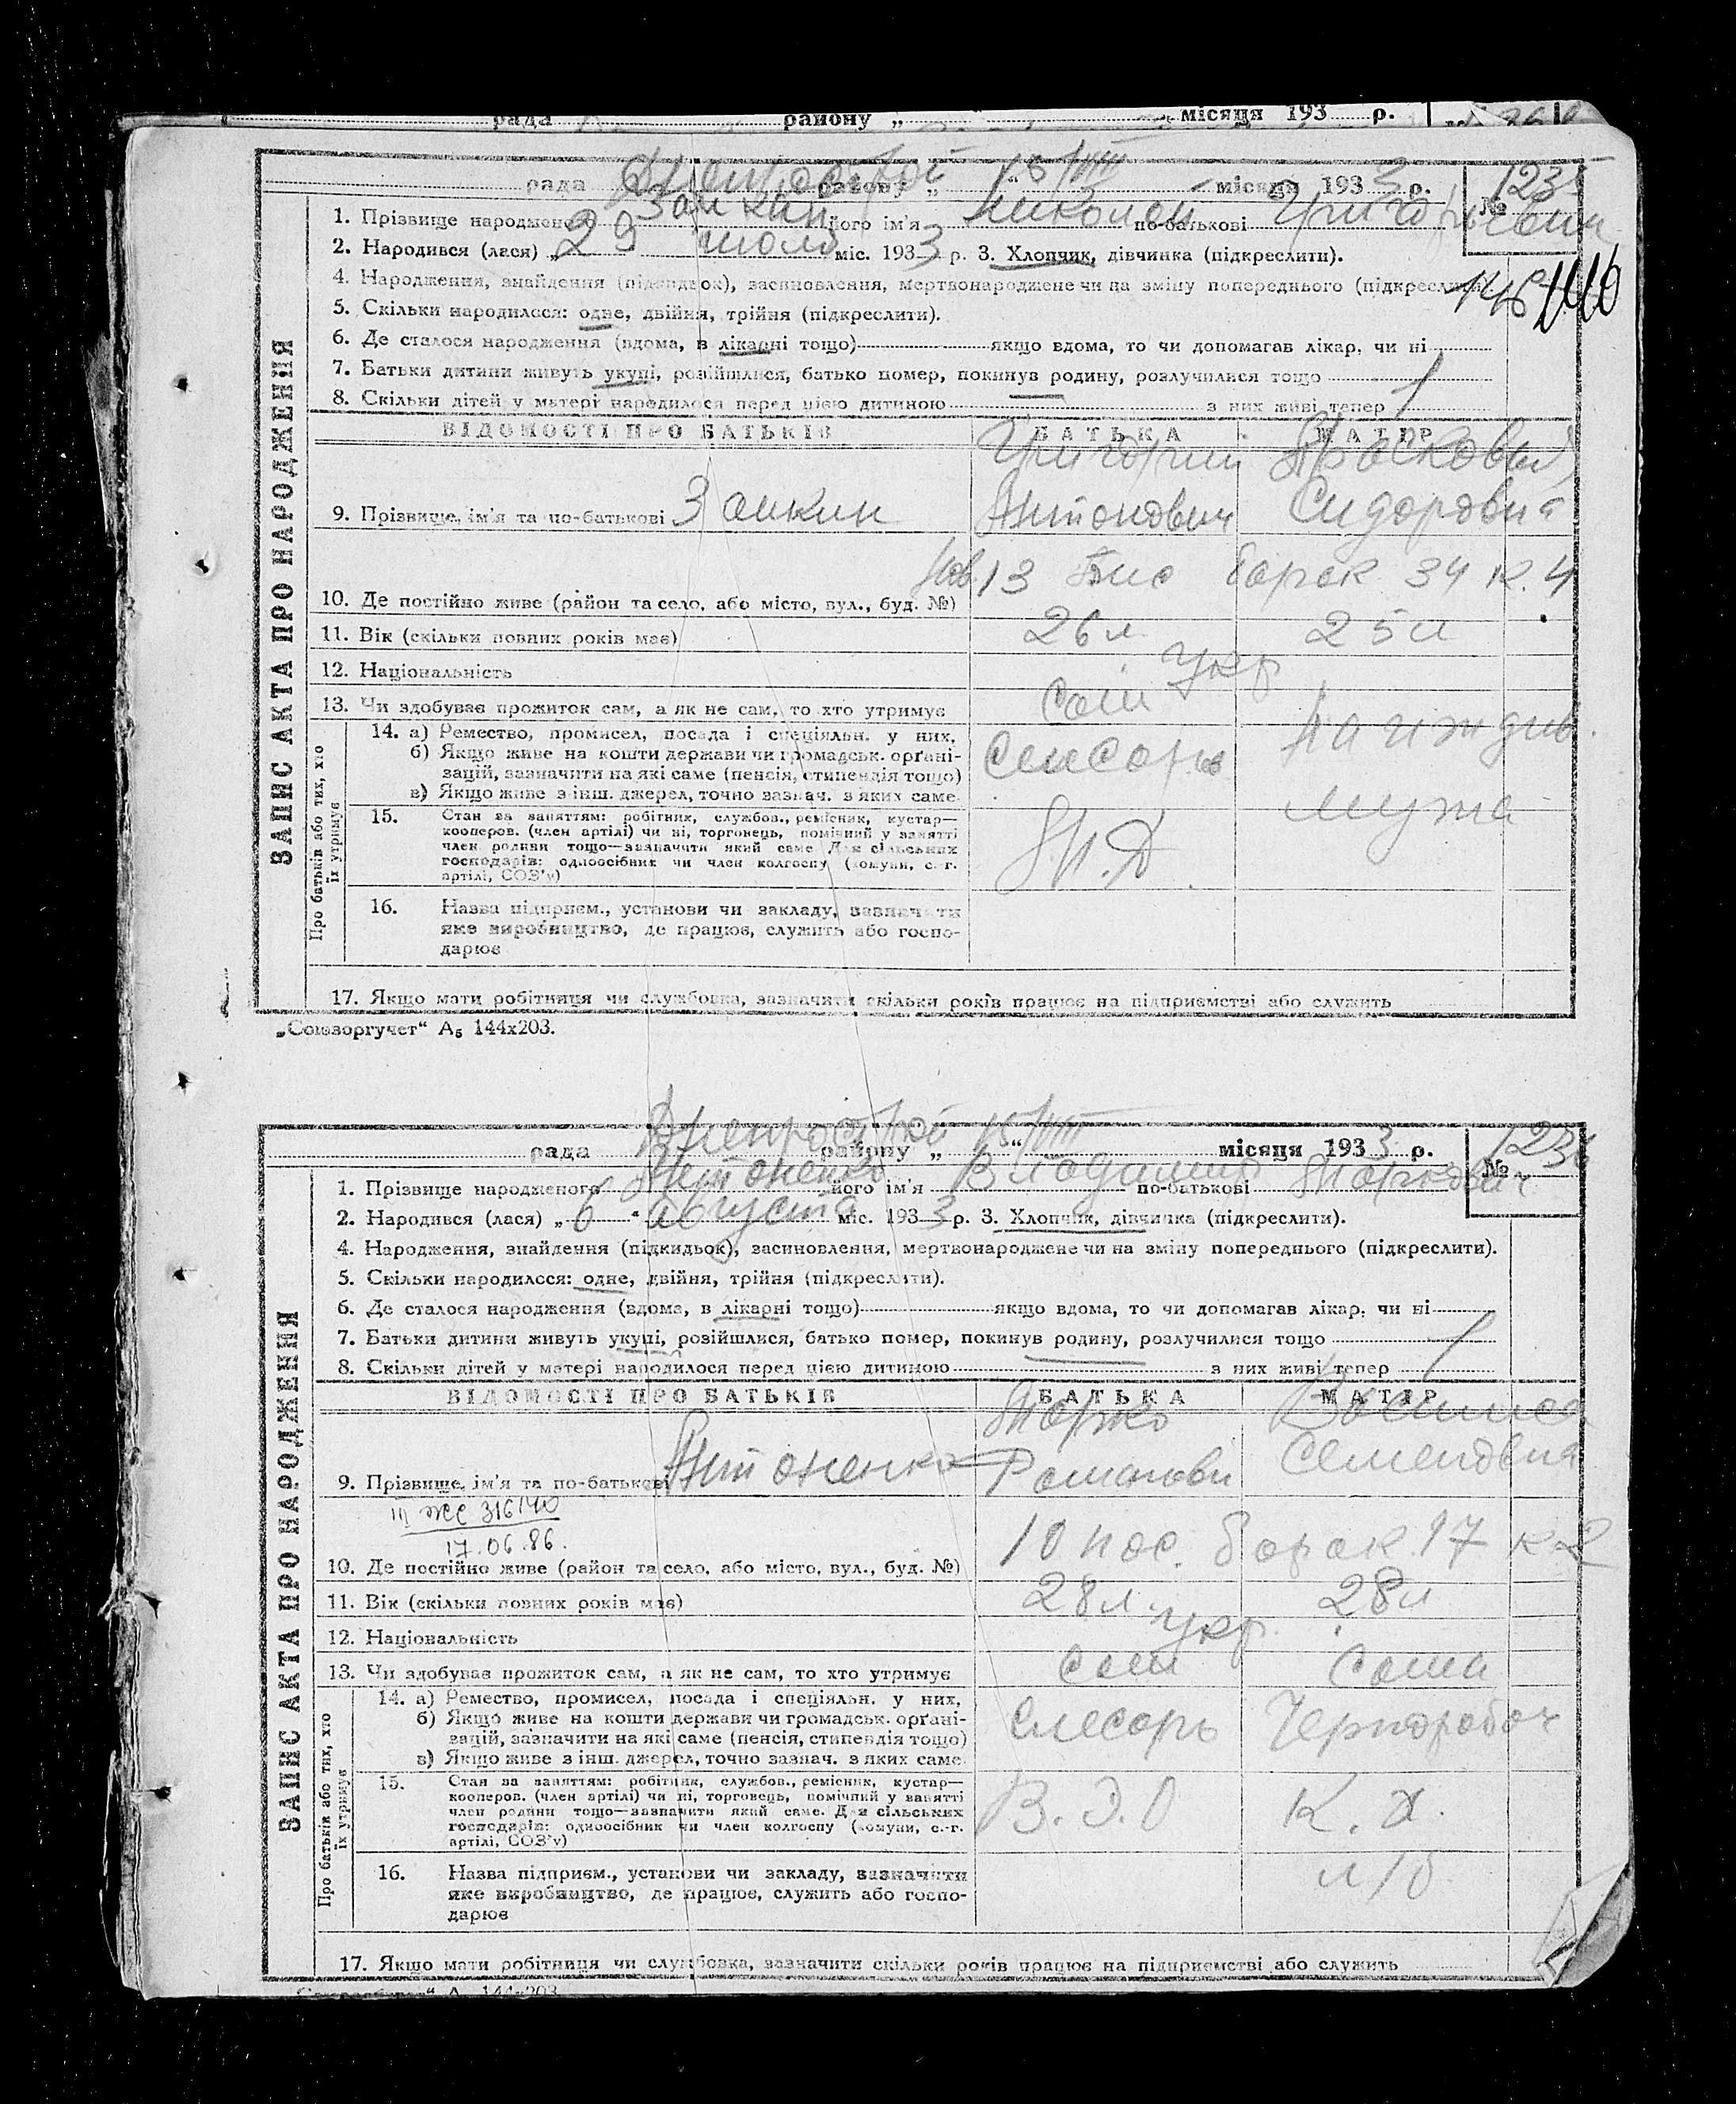 рада району „ “ місяця 193 р.
рада Днепрострой району „ 15/VIII “ місяця 1933 р. № 123
1. Прізвище народженого Заикин його ім'я Николай по-батькові Григорьевич
2. Народився (лася) „29 июля міс. 1933 р. 3. Хлопчик, дівчинка (підкреслити).
4. Народження, знайдення (підкидьок), засиновлення, мертвонароджене чи на зміну попереднього (підкреслити).
146
5. Скільки народилося: одне, двійня, трійня (підкреслити).
6. Де сталося народження (вдома, в лікарні тощо) якщо вдома, то чи допомагав лікар, чи ні
7. Батьки дитини живуть укупі, розійшлися, батько помер, покинув родину, розлучилися тощо
8. Скільки дітей у матері народилося перед цією дитиною — з них живі тепер 1
ВІДОМОСТІ ПРО БАТЬКІВ БАТЬКА МАТІР
Григорий Прасковья
9. Прізвище, ім'я та по-батькові Заикин Антонович Сидоровна
13 пос барак 34 к. 4
10. Де постійно живе (район та село, або місто, вул., буд. №)
11. Вік (скільки повних років має) 26 л 25 л
12. Національність укр
13. Чи здобуває прожиток сам, а як не сам, то хто утримує сам на иждив.
14. а) Ремество, промисел, посада і спеціяльн. у них,
б) Якщо живе на кошти держави чи громадськ. орґані-
зацій, зазначити на які саме (пенсія, стипендія тощо) слесарь
в) Якщо живе з інш. джерел, точно зазнач. з яких саме мужа
15. Стан за заняттям: робітник, службов., ремісник, кустар—
кооперов. (член артілі) чи ні, торговець, помічний у занятті
член родини тощо—зазначити який саме Для сільських
господарів: одноосібник чи член колгоспу (комуни, с.-г.
артілі, СОЗ'у)
16. Назва підприєм., установи чи закладу, зазначити
яке виробництво, де працює, служить або госпо-
дарює
17. Якщо мати робітниця чи службовка, зазначити скільки років працює на підприємстві або служить
Про батьків або тих, хто
їх утримує
ЗАПИС АКТА ПРО НАРОДЖЕННЯ
„Союзоргучет“ А₅ 144х203.
рада Днепрострой району „ 15/VIII “ місяця 1933 р. № 123
1. Прізвище народженого Антоненко його ім'я Владимир по-батькові Маркович
2. Народився (лася) „6“ августа міс. 1933 р. 3. Хлопчик, дівчинка (підкреслити).
4. Народження, знайдення (підкидьок), засиновлення, мертвонароджене чи на зміну попереднього (підкреслити).
5. Скільки народилося: одне, двійня, трійня (підкреслити).
6. Де сталося народження (вдома, в лікарні тощо) якщо вдома, то чи допомагав лікар, чи ні
7. Батьки дитини живуть укупі, розійшлися, батько помер, покинув родину, розлучилися тощо
8. Скільки дітей у матері народилося перед цією дитиною — з них живі тепер 1
ВІДОМОСТІ ПРО БАТЬКІВ БАТЬКА МАТІР
Марко Василиса
9. Прізвище, ім'я та по-батькові Антоненко Романови Семеновна
III ЖС 316140
17.06.86.
10 пос. барак 17 к 2
10. Де постійно живе (район та село, або місто, вул., буд. №)
11. Вік (скільки повних років має) 28 л. 28 л
12. Національність укр.
13. Чи здобуває прожиток сам, а як не сам, то хто утримує сам сама
14. а) Ремество, промисел, посада і спеціяльн. у них,
б) Якщо живе на кошти держави чи громадськ. орґані-
зацій, зазначити на які саме (пенсія, стипендія тощо) слесарь Чернорабоч
в) Якщо живе з інш. джерел, точно зазнач. з яких саме
15. Стан за заняттям: робітник, службов., ремісник, кустар—
кооперов. (член артілі) чи ні, торговець, помічний у занятті
член родини тощо—зазначити який саме. Для сільських
господарів: одноосібник чи член колгоспу (комуни, с.-г.
артілі, СОЗ'у)
В. Э. О К. Х.
16. Назва підприєм., установи чи закладу, зазначити
яке виробництво, де працює, служить або госпо-
дарює
17. Якщо мати робітниця чи службовка, зазначити скільки років працює на підприємстві або служить
Про батьків або тих, хто
їх утримує
ЗАПИС АКТА ПРО НАРОДЖЕННЯ